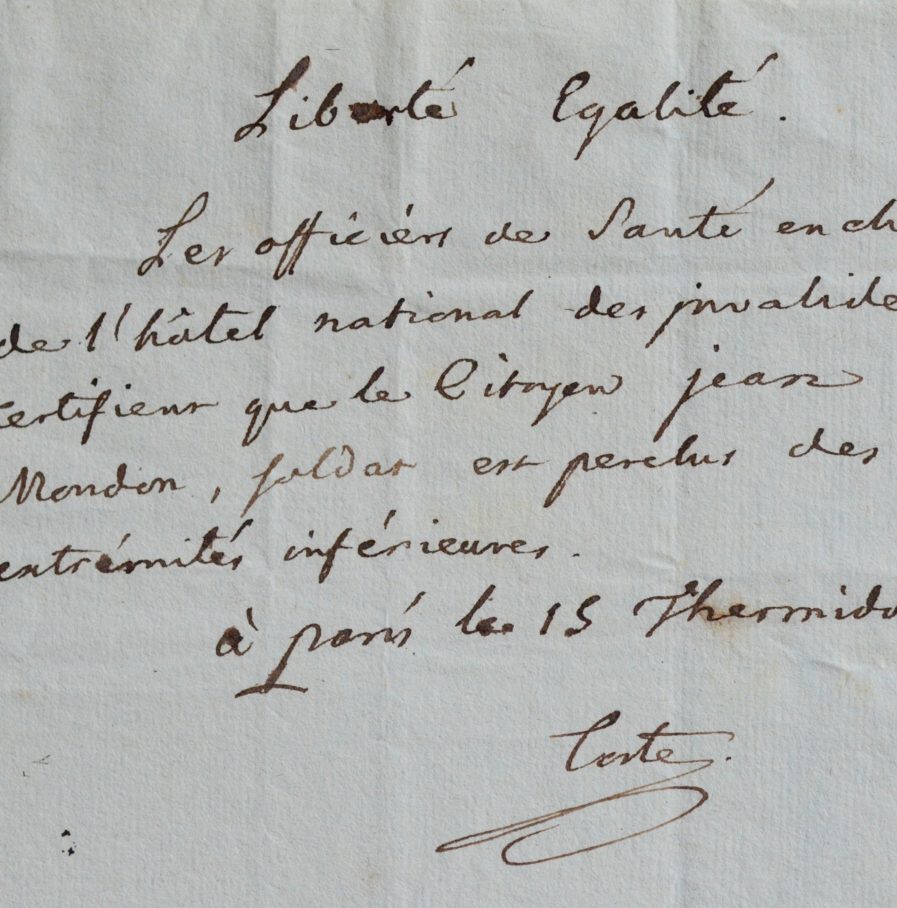 Liberté Egalité.
Les officiérs de Santé en ch
de l'hôtel national des jnvalide
certifient que le Citoyen jean
Mondon, soldat est perclus des
extrémités inférieures.
à paris le 15 Thermido
Coste